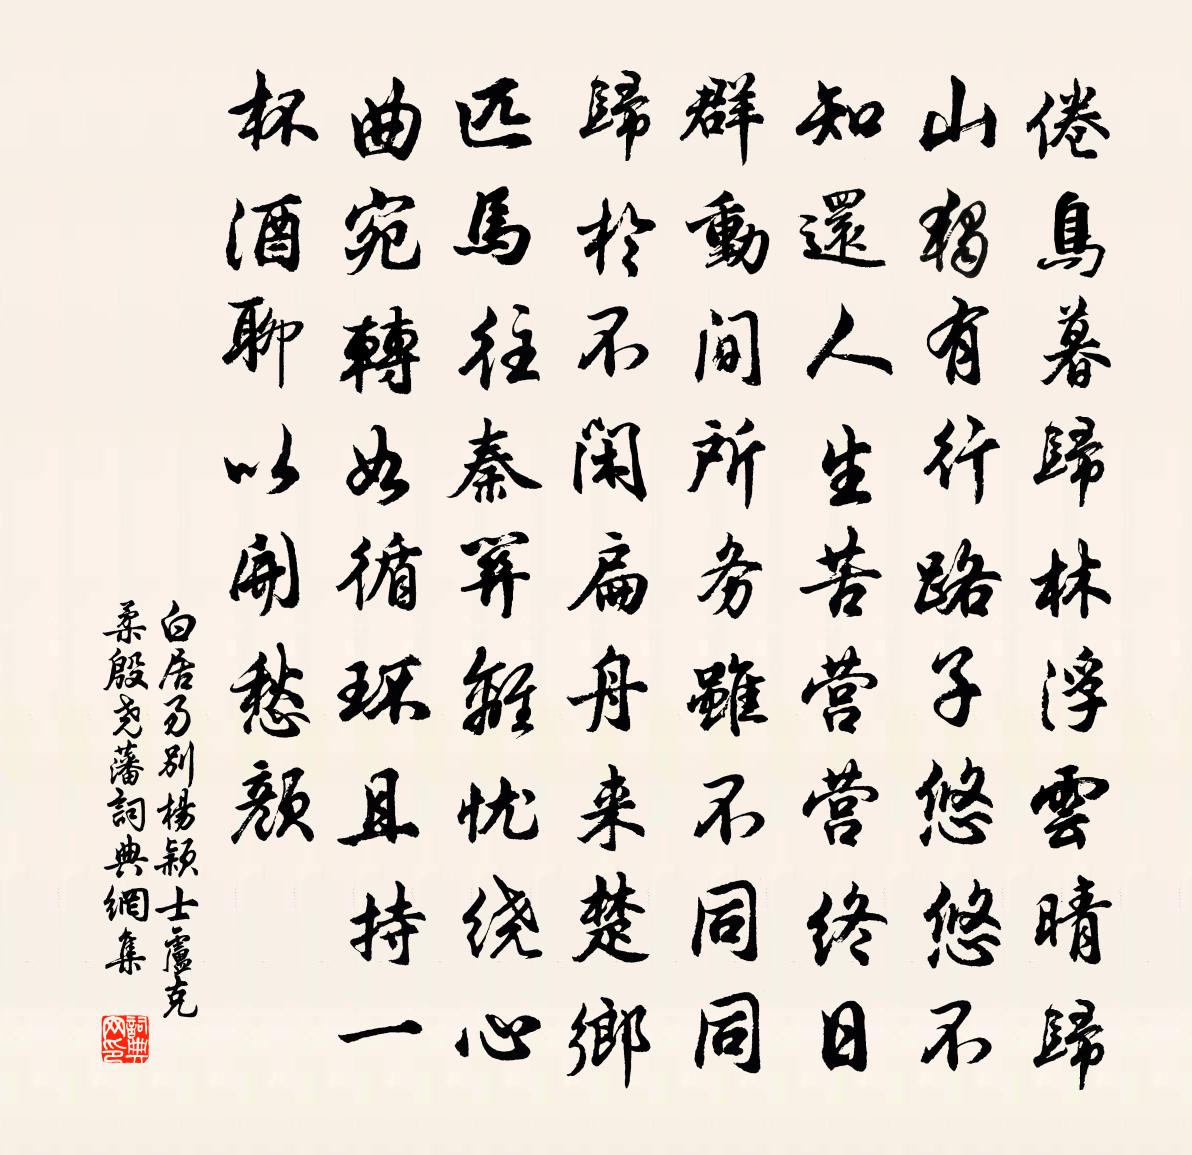 倦鳥暮歸林浮雲晴歸
山獨有行路子悠悠不
知還人生苦营营终日
群動间所务雖不同同
歸於不闲扁舟来楚鄉
匹馬往秦関離忧绕心
曲宛轉如循环且持一
杯酒聊以開愁顏
白居易別楊颖士盧克
柔殷尧藩詞典網集
詞典網印